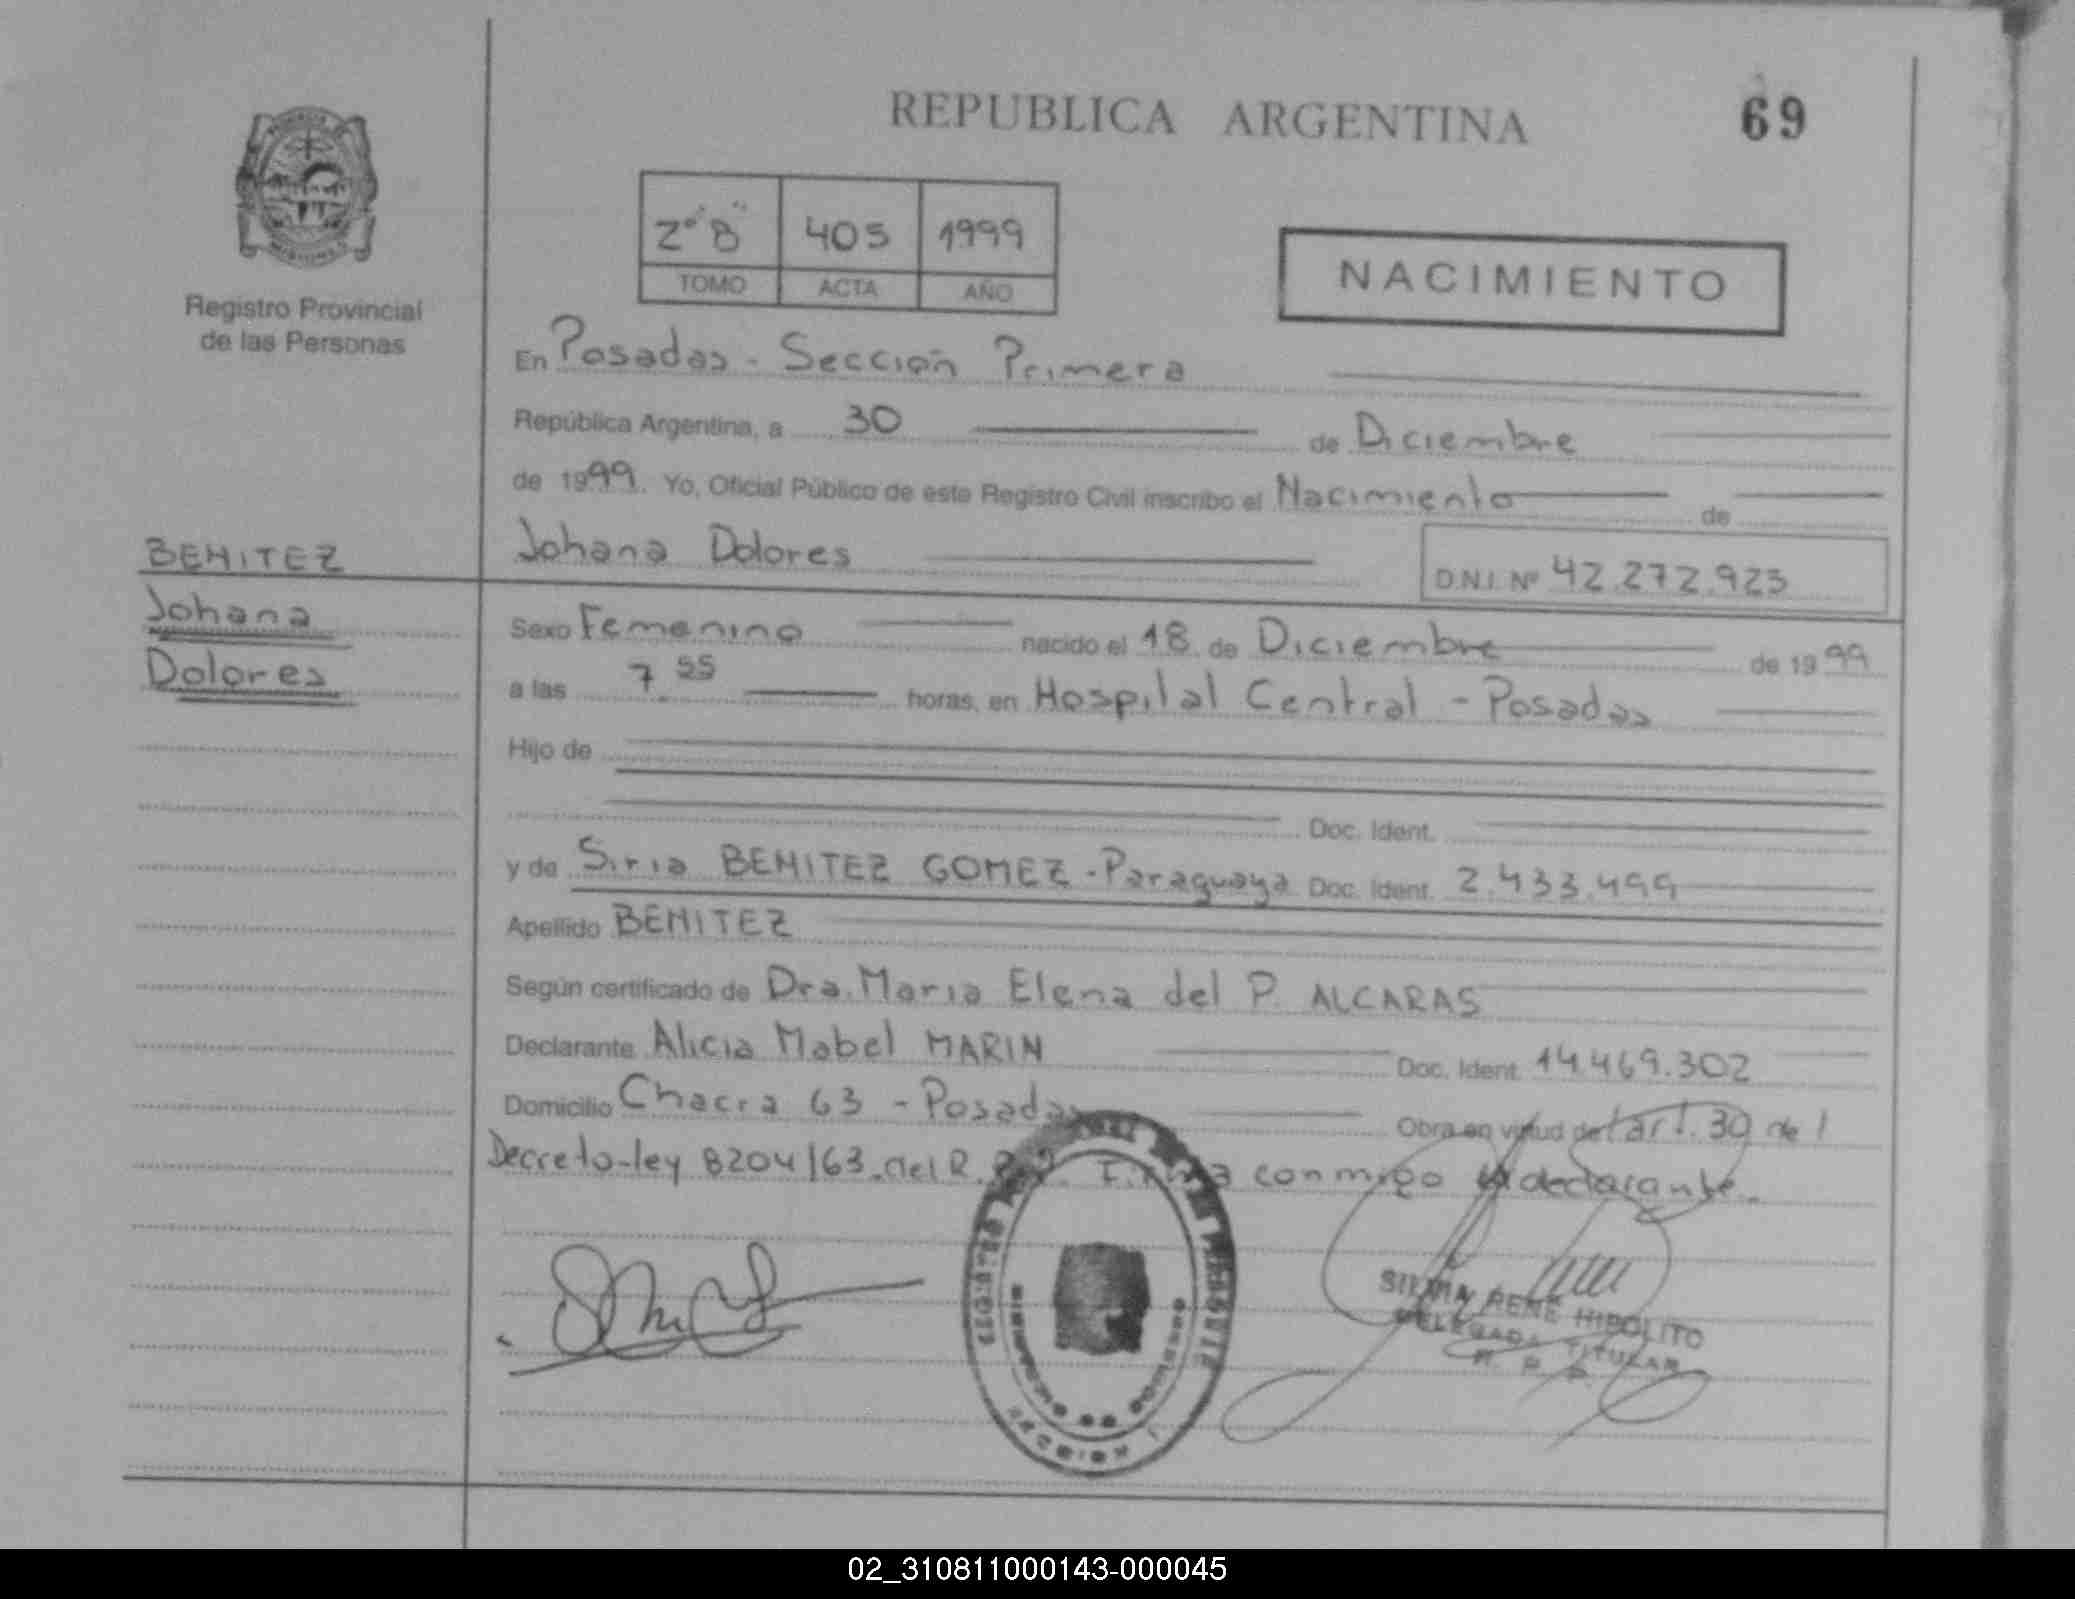 REPUBLICA ARGENTINA
69
2º "B" 405 1999
TOMO ACTA AÑO
NACIMIENTO
Registro Provincial
de las Personas
En Posadas - Sección Primera
República Argentina, a 30 de Diciembre
de 1999. Yo, Oficial Público de este Registro Civil inscribo el Nacimiento de
BENITEZ
Johana
Dolores
Johana Dolores D.N.I. Nº 42.272.923
Sexo Femenino nacido el 18 de Diciembre de 1999
a las 7 55 horas, en Hospital Central - Posadas
Hijo de
Doc. Ident.
y de Siria BENITEZ GOMEZ - Paraguaya Doc. Ident. 2.433.499
Apellido BENITEZ
Según certificado de Dra. Maria Elena del P. ALCARAS
Declarante Alicia Mabel MARIN Doc. Ident. 14.469.302
Domicilio Chacra 63 - Posadas Obra en virtud del art. 30 del
Decreto-ley 8204/63. del R. conmigo la declarante.
SILVIA RENE HIPOLITO
DELEGADA TITULAR
R. P. P.
02_310811000143-000045